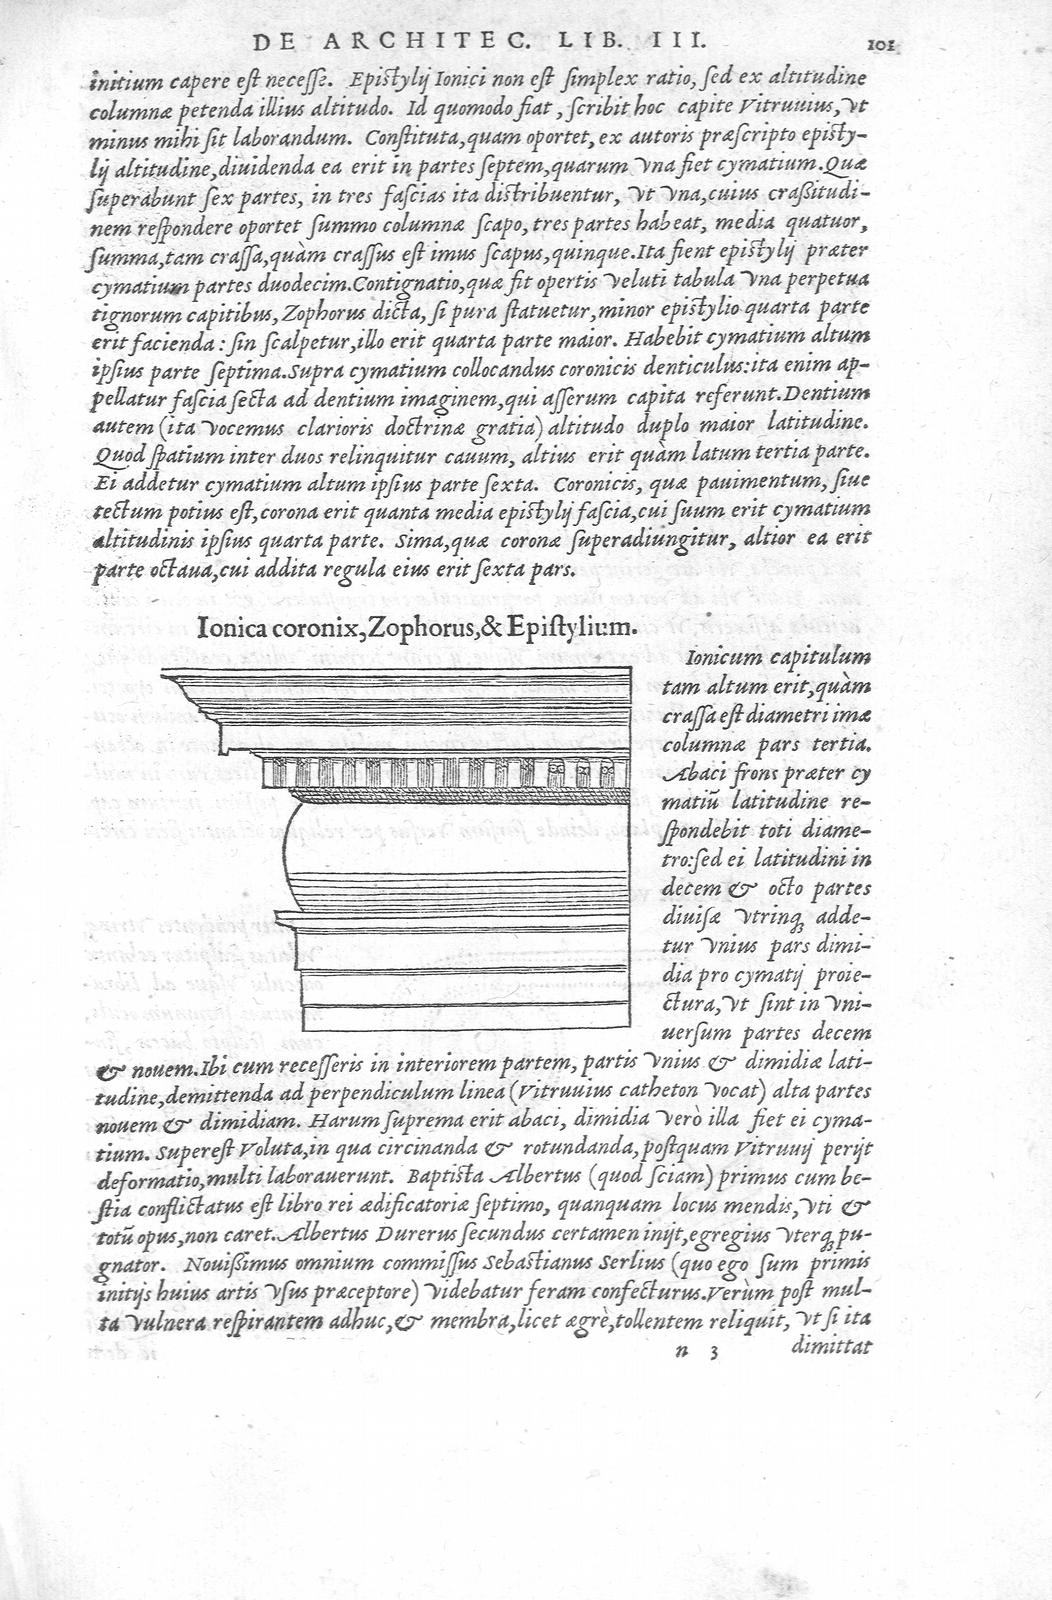 DE ARCHITEC. LIB. III. 101
initium capere est necesse. Epistylij Ionici non est simplex ratio, sed ex altitudine
columnæ petenda illius altitudo. Id quomodo fiat, scribit hoc capite Vitruuius, vt
minus mihi sit laborandum. Constituta, quam oportet, ex autoris præscripto episty-
lij altitudine, diuidenda ea erit in partes septem, quarum vna fiet cymatium. Quæ
superabunt sex partes, in tres fascias ita distribuentur, vt vna, cuius craßitudi-
nem respondere oportet summo columnæ scapo, tres partes habeat, media quatuor,
summa, tam crassa, quàm crassus est imus scapus, quinque. Ita fient epistylij præter
cymatium partes duodecim. Contignatio, quæ fit opertis veluti tabula vna perpetua
tignorum capitibus, Zophorus dicta, si pura statuetur, minor epistylio quarta parte
erit facienda: sin scalpetur, illo erit quarta parte maior. Habebit cymatium altum
ipsius parte septima. Supra cymatium collocandus coronicis denticulus: ita enim ap-
pellatur fascia secta ad dentium imaginem, qui asserum capita referunt. Dentium
autem (ita vocemus clarioris doctrinæ gratia) altitudo duplo maior latitudine.
Quod spatium inter duos relinquitur cauum, altius erit quàm latum tertia parte.
Ei addetur cymatium altum ipsius parte sexta. Coronicis, quæ pauimentum, siue
tectum potius est, corona erit quanta media epistylij fascia, cui suum erit cymatium
altitudinis ipsius quarta parte. Sima, quæ coronæ superadiungitur, altior ea erit
parte octaua, cui addita regula eius erit sexta pars.
Ionica coronix, Zophorus, & Epistylium.
Ionicum capitulum
tam altum erit, quàm
crassa est diametri imæ
columnæ pars tertia.
Abaci frons præter cy
matiū latitudine re-
spondebit toti diame-
tro: sed ei latitudini in
decem & octo partes
diuisæ vtrinq; adde-
tur vnius pars dimi-
dia pro cymatij proie-
ctura, vt sint in vni-
uersum partes decem
& nouem. Ibi cum recesseris in interiorem partem, partis vnius & dimidiæ lati-
tudine, demittenda ad perpendiculum linea (Vitruuius catheton vocat) alta partes
nouem & dimidiam. Harum suprema erit abaci, dimidia verò illa fiet ei cyma-
tium. Superest Voluta, in qua circinanda & rotundanda, postquam Vitruuij perijt
deformatio, multi laborauerunt. Baptista Albertus (quod sciam) primus cum be-
stia conflictatus est libro rei ædificatoriæ septimo, quanquam locus mendis, vti &
totū opus, non caret. Albertus Durerus secundus certamen inijt, egregius vterq; pu-
gnator. Nouißimus omnium commissus Sebastianus Serlius (quo ego sum primis
initijs huius artis vsus præceptore) videbatur feram confecturus. Verùm post mul-
ta vulnera respirantem adhuc, & membra, licet ægrè, tollentem reliquit, vt si ita
n 3 dimittat